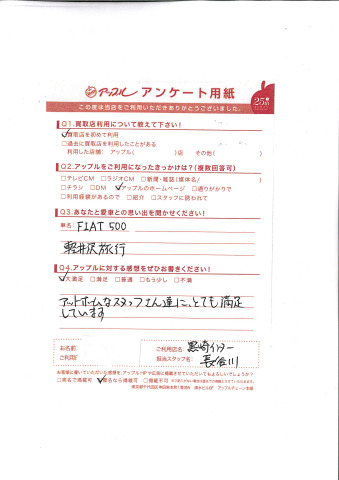 アップル アンケート用紙
25周年
この度は当店をご利用いただきありがとうございました。
Q1.買取店利用について教えて下さい!
☑買取店を初めて利用
□過去に買取店を利用したことがある
利用した店舗: アップル( )店 その他( )
Q2.アップルをご利用になったきっかけは?(複数回答可)
□テレビCM □ラジオCM □新聞・雑誌(媒体名/ )
□チラシ □DM ☑アップルのホームページ □通りがかりで
□利用経験があるので □紹介 □スタッフに誘われて
Q3.あなたと愛車との思い出を聞かせください!
車名: FIAT 500
軽井沢旅行
Q4.アップルに対する感想をぜひお書きください!
☑大満足 □満足 □普通 □もう少し □不満
アットホームなスタッフさん達に、とても満足
しています
お名前:
ご利用店名: 黒崎インター
ご利用日:
担当スタッフ名: 長谷川
お客様に書いていただいた感想を、アップルHPや広告に掲載させていただいてもよろしいでしょうか?
□実名で掲載可 ☑匿名なら掲載可 □掲載不可